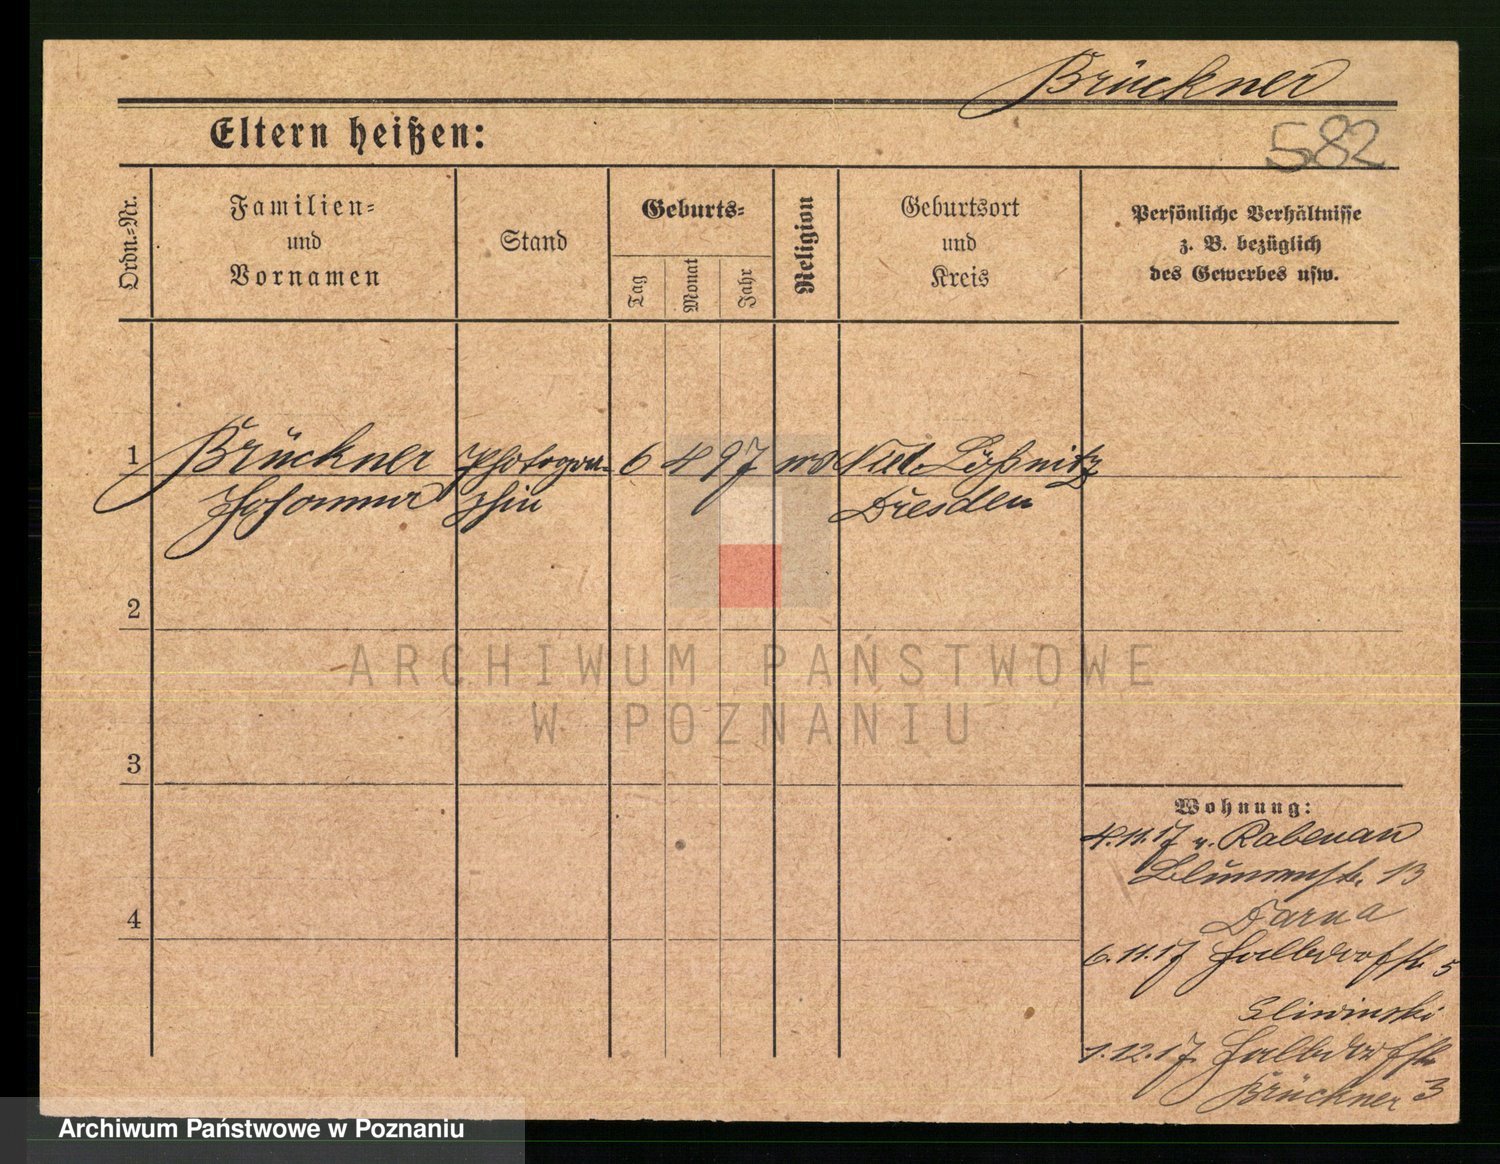 Brückner
Eltern heißen:
582
Ordn.-Nr.
Familien-
und
Vornamen
Stand
Geburts-
Tag
Monat
Jahr
Religion
Geburtsort
und
Kreis
Persönliche Verhältnisse
z. B. bezüglich
des Gewerbes usw.
1
Brückner
Johanna
Photogra-
phin
6
4
97
Nied. Lößnitz
Dresden
2
ARCHIWUM PAŃSTWOWE
W POZNANIU
3
Wohnung:
4.11.17 v. Rabenau
Blumenstr. 13
4
6.11.17 Halbdorfstr. 5
Sliwinski
1.12.17 Halbdorfstr. 3
Brückner
Archiwum Państwowe w Poznaniu